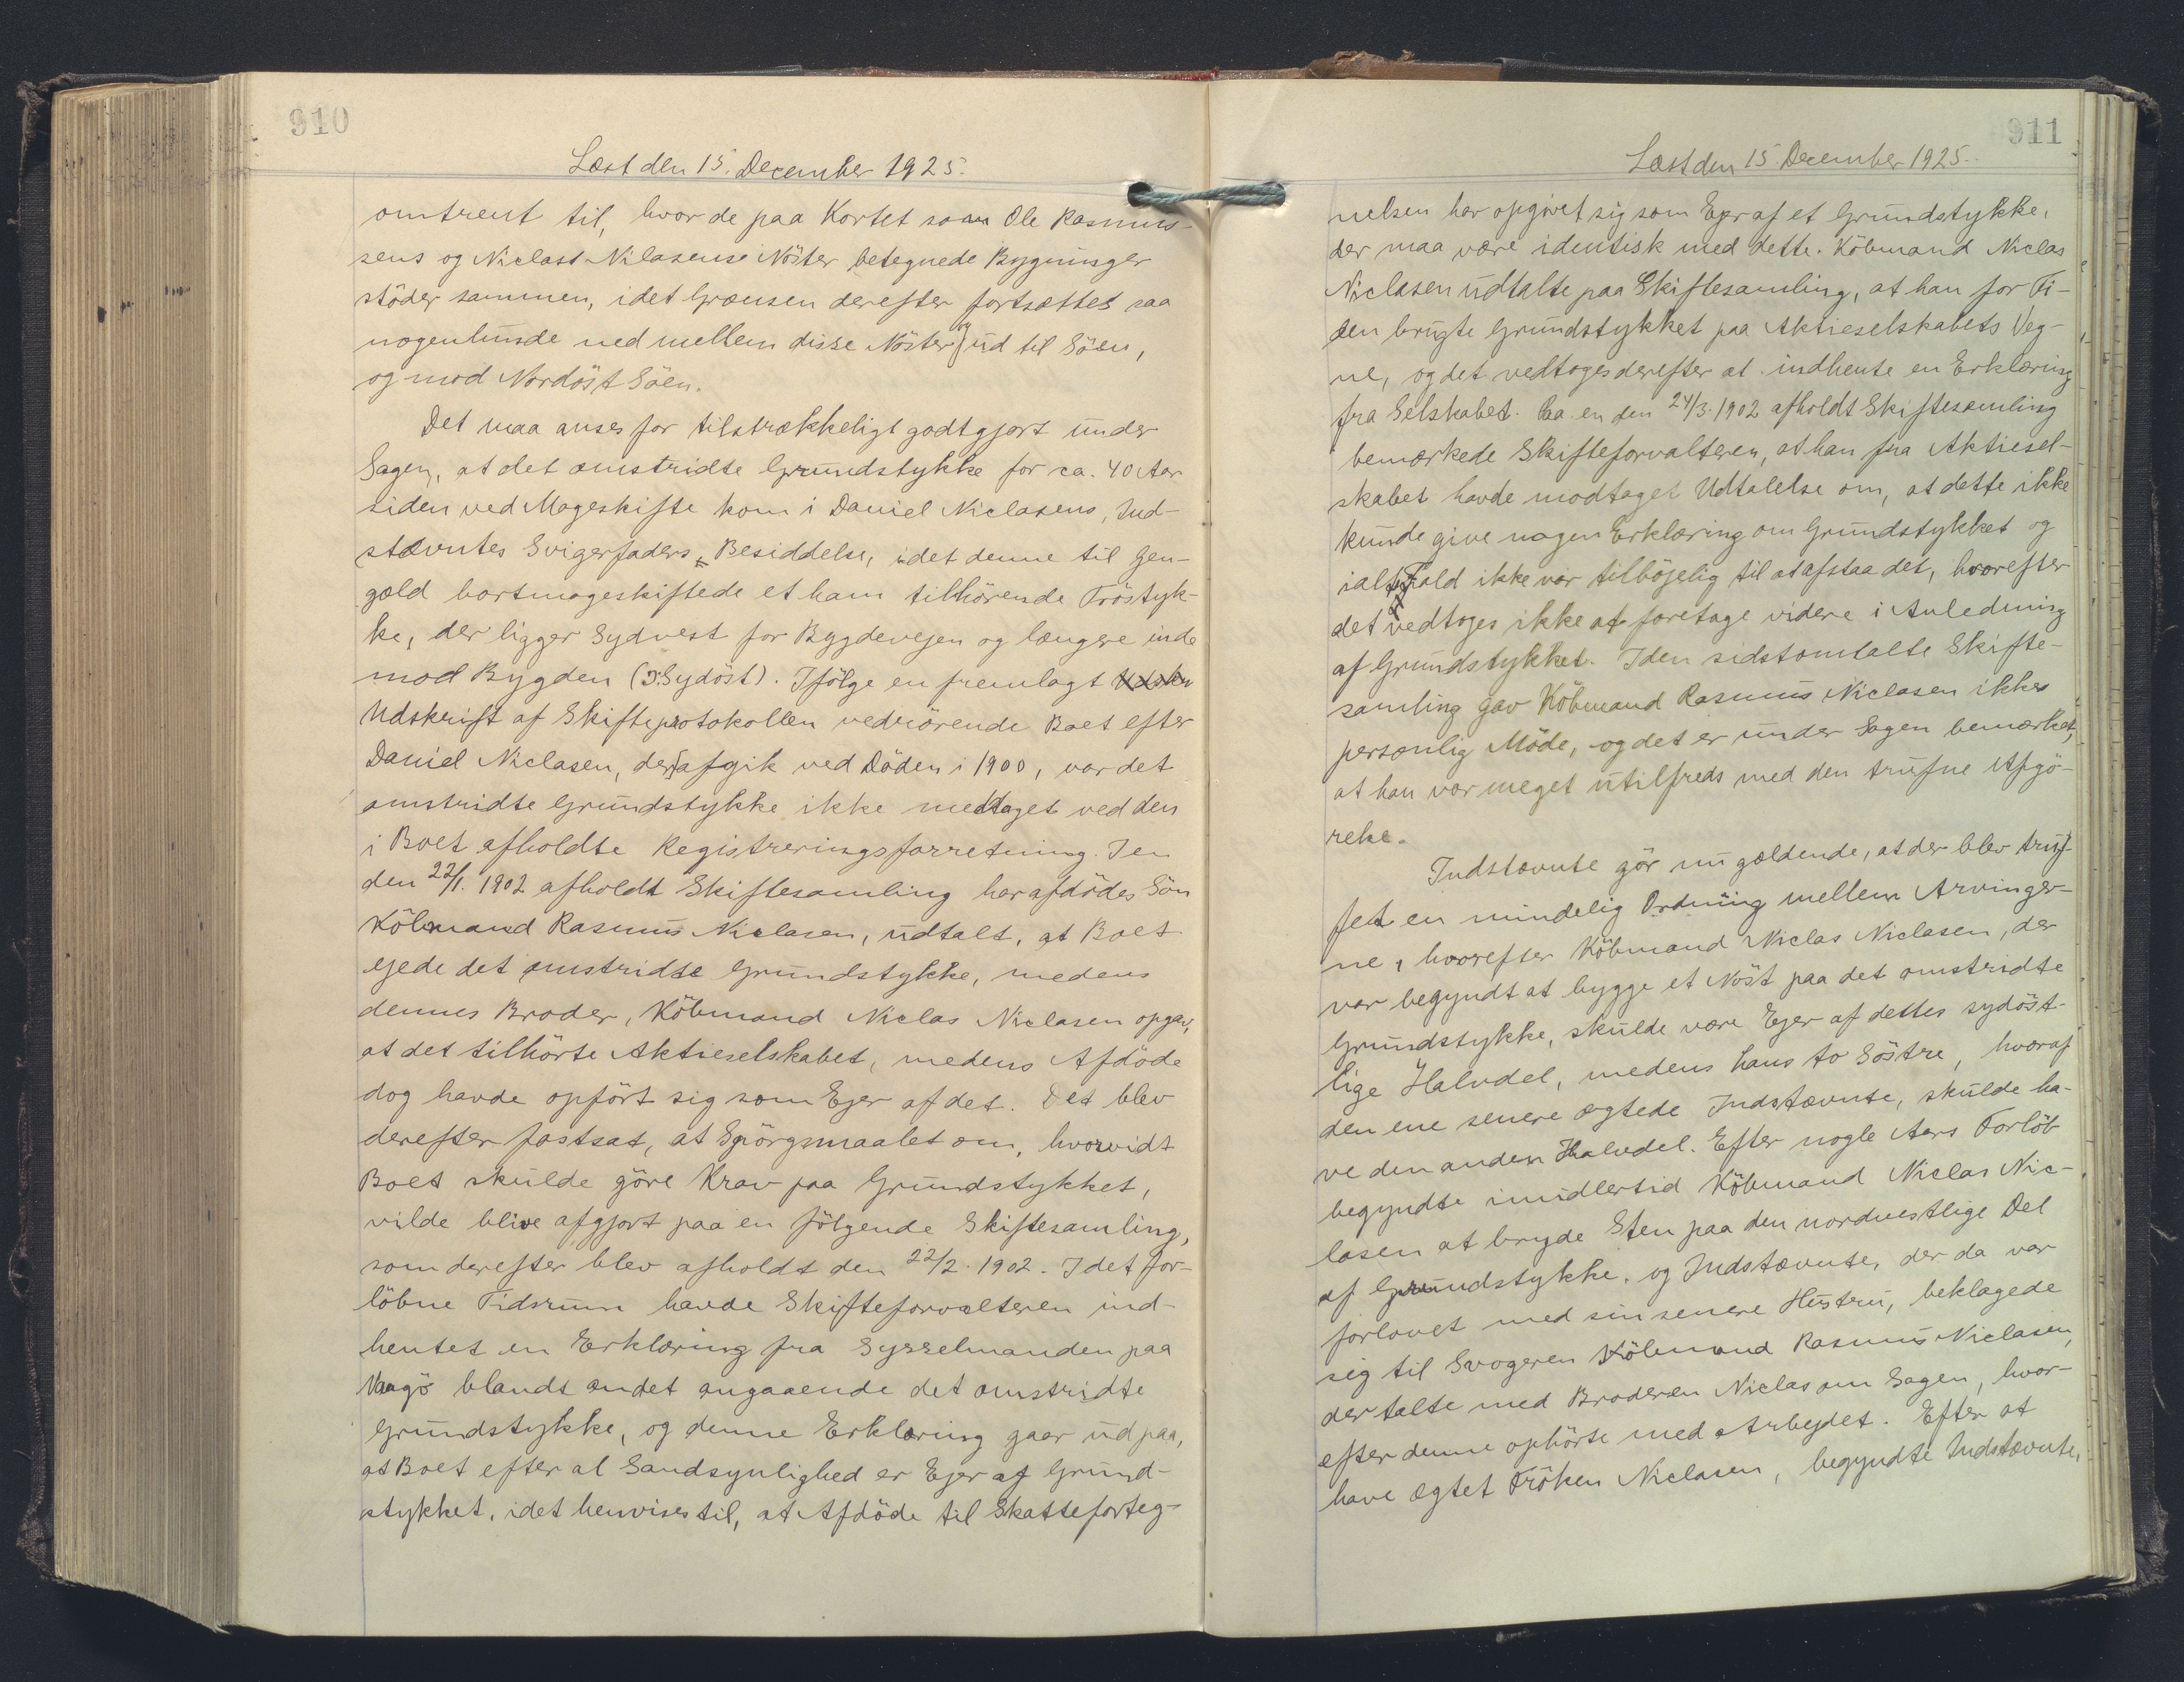 910
Læst den 15. December 1925.
omtrent til, hvor de paa Kortet som Ole Rasmus-
sens og Niclast Nilasense Nöster betegnede Bygninger
stöder sammen, idet Grænsen derefter fortsættes saa
nogenlunde ned mellem disse Nöster og ud til Söen,
og mod Nordöst Söen.
Det maa anses for tilstrækkeligt godtgjort under
Sagen, at det omstridte Grundstykke for ca. 40 Aar
siden ved Mageskifte kom i Daniel Niclasens, Ind-
stævntes Svigerfaders, Besiddelse, idet denne til Gen-
gæld bortmageskiftede et ham tilhörende Tröstyk-
ke, der ligger Sydvest for Bygdevejen og længere inde
mod Bygden (ɔ: Sydöst). Ifölge en fremlagt
Udskrift af Skifteprotokollen vedrörende Boet efter
Daniel Niclasen, der afgik ved Döden i 1900, var det
omstridte Grundstykke ikke medtaget ved den
i Boet afholdte Registreringsforretning. I en
den 22/1. 1902 afholdt Skiftesamling har afdödes Sön
Köbmand Rasmus Niclasen, udtalt, at Boet
ejede det omstridte Grundstykke, medens
dennes Broder, Köbmand Niclas Niclasen opgav,
at det tilhörte Aktieselskabet, medens Afdöde
dog havde opfört sig som Ejer af det. Det blev
derefter fastsat, at Spörgsmaalet om, hvorvidt
Boet skulde göre Krav paa Grundstykket,
vilde blive afgjort paa en fölgende Skiftesamling,
som derefter blev afholdt den 22/2. 1902. I det for-
löbne Tidsrum havde Skifteforvalteren ind-
hentet en Erklæring fra Sysselmanden paa
Vaagö blandt andet angaaende det omstridte
Grundstykke, og denne Erklæring gaar ud paa,
at Boet efter al Sandsynlighed er Ejer af Grund-
stykket, idet henvises til, at Afdöde til Skatteforteg-
911
Læst den 15 December 1925.
nelsen har opgivet sig som Ejer af et Grundstykke,
der maa være identisk med dette. Köbmand Niclas
Niclasen udtalte paa Skiftesamling, at han for Ti-
den brugte Grundstykket paa Aktieselskabets Veg-
ne, og det vedtoges derefter at indhente en Erklæring
fra Selskabet. Paa en den 24/3. 1902 afholdt Skiftesamling
bemærkede Skifteforvalteren, at han fra Aktiesel-
skabet havde modtaget Udtalelse om, at dette ikke
kunde give nogen Erklæring om Grundstykket og
ialt Fald ikke var tilböjelig til at afstaa det, hvorefter
det vedtoges ikke at foretage videre i Anledning
af Grundstykket. I den sidstomtalte Skifte-
samling gav Köbmand Rasmus Niclasen ikke
personlig Möde, og det er under Sagen bemærket,
at han var meget utilfreds med den trufne Afgö-
relse.
Indstævnte gör nu gældende, at der blev truf-
fet en mindelig Ordning mellem Arvinger-
ne, hvorefter Köbmand Niclas Niclasen, der
var begyndt at bygge et Nöst paa det omstridte
Grundstykke, skulde være Ejer af dettes sydöst-
lige Halvdel, medens hans to Söstre, hvoraf
den ene senere ægtede Indstævnte, skulde ha-
ve den anden Halvdel. Efter nogle Aars Forlöb
begyndte imidlertid Köbmand Niclas Nic-
lasen at bryde Sten paa den nordvestlige Del
af Grundstykke, og Indstævnte, der da var
forlovet med sin senere Hustru, beklagede
sig til Svogeren Köbmand Rasmus Niclasen,
der talte med Broderen Niclas om Sagen, hvor-
efter denne ophörte med Arbejdet. Efter at
have ægtet Fröken Niclasen, begyndte Indstævnte,